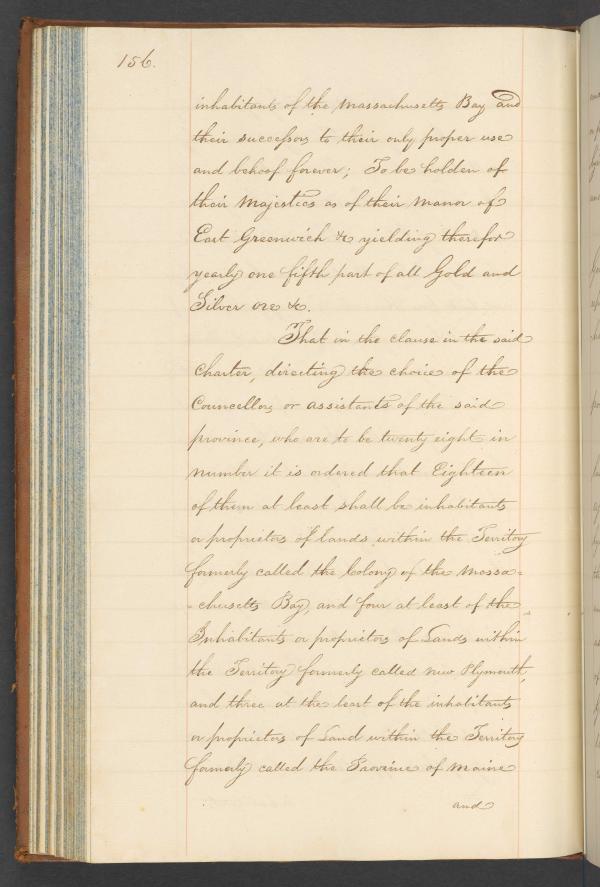 156.
inhabitants of the Massachusetts Bay and
their successors to their only proper use
and behoof forever; To be holden of
their Majesties as of their Manor of
East Greenwich &c yielding therefor
yearly one fifth part of all Gold and
Silver ore &c.
That in the clause in the said
Charter, directing the choice of the
Councellors or assistants of the said
province, who are to be twenty eight in
number it is ordered that Eighteen
of them at least shall be inhabitants
or proprietors of lands within the Territory
formerly called the Colony of the Massa=
=chusetts Bay, and four at least of the
Inhabitants or proprietors of Lands within
the Territory formerly called New Plymouth,
and three at the least of the inhabitants
or proprietors of Land within the Territory
formerly called the Province of Maine
and